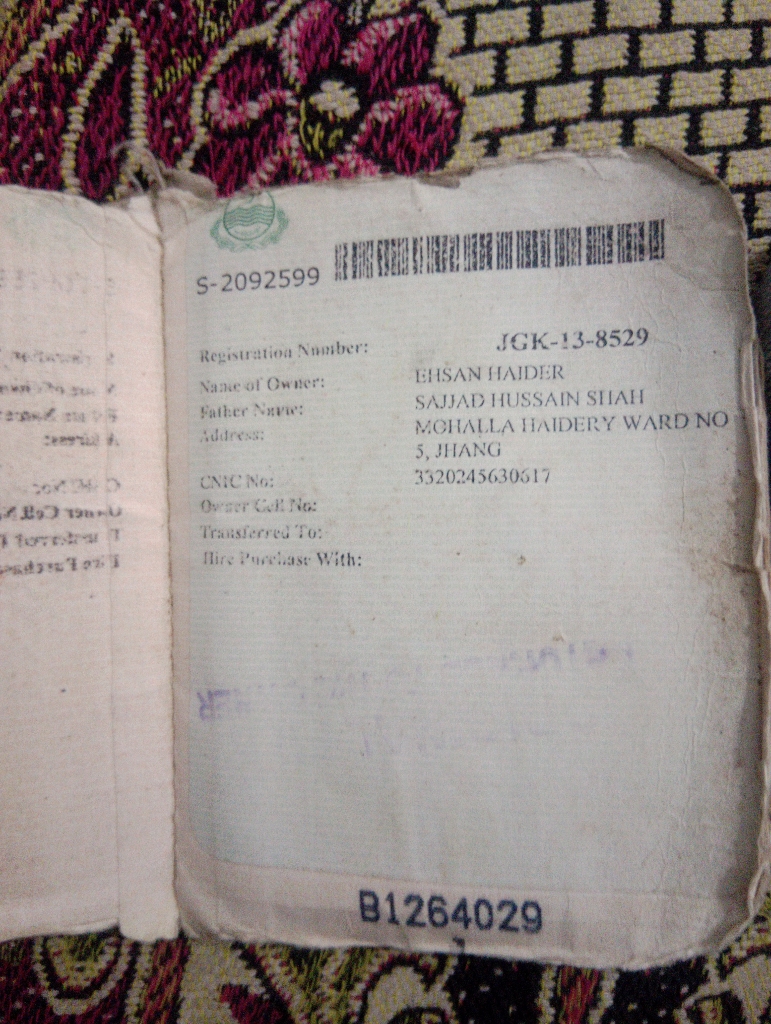 S-2092599
Registration Number: JGK-13-8529
Name of Owner: EHSAN HAIDER
Father Name: SAJJAD HUSSAIN SHAH
Address: MOHALLA HAIDERY WARD NO
5, JHANG
CNIC No: 3320245630617
Owner Cell No:
Transferred To:
Hire Purchase With:
B1264029